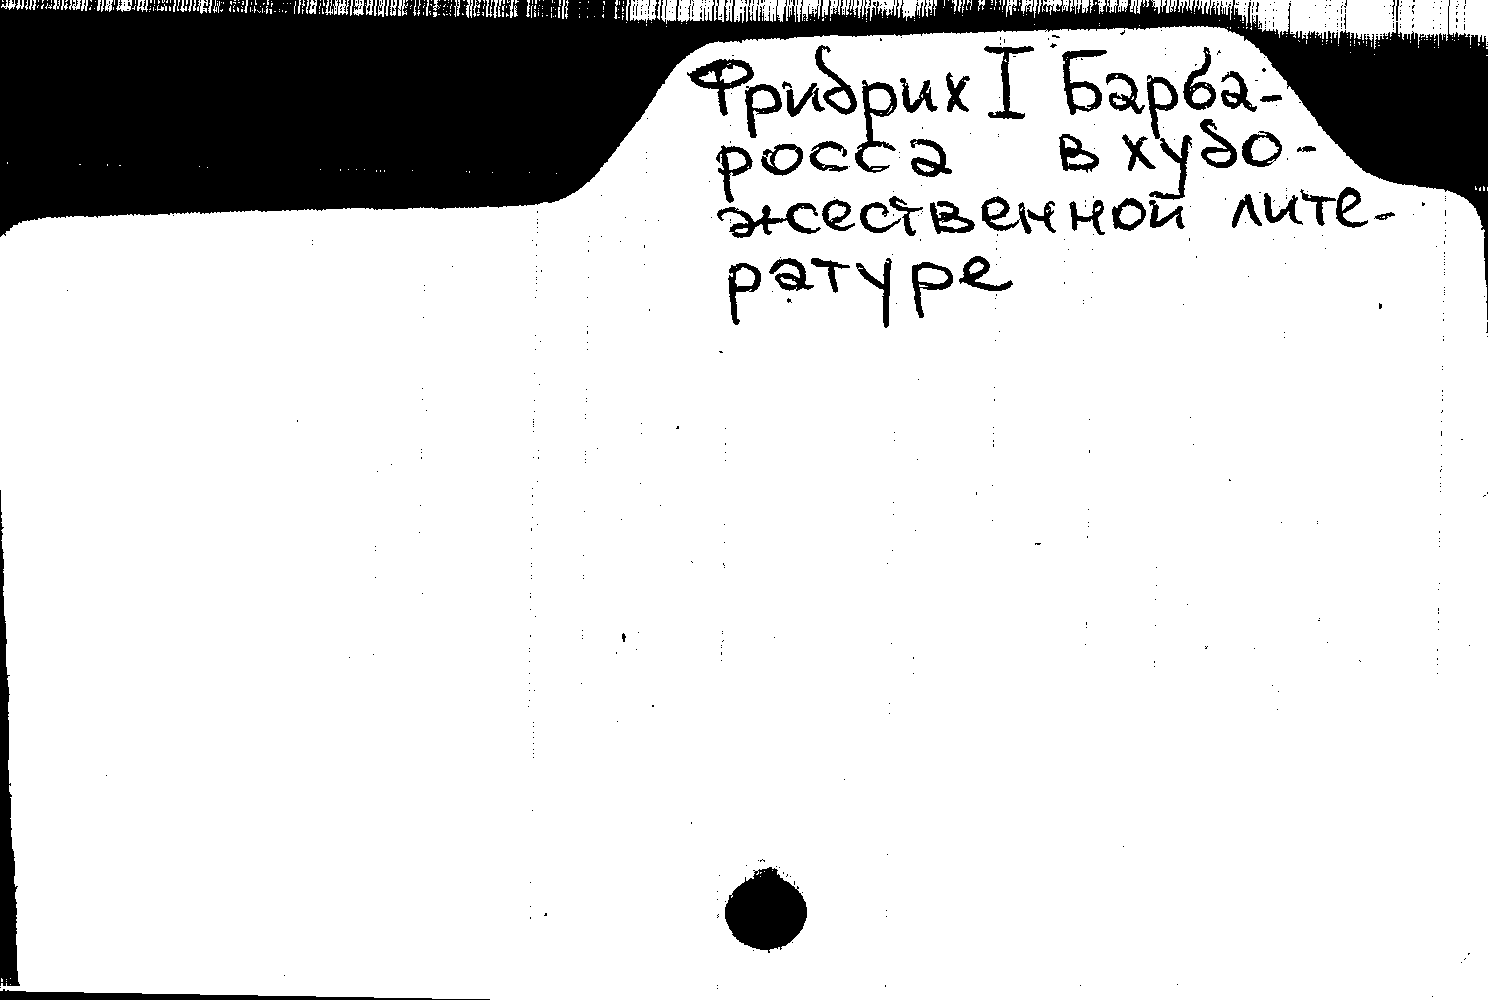 Фридрих I Барба-
росса в худо-
жественной лите-
ратуре